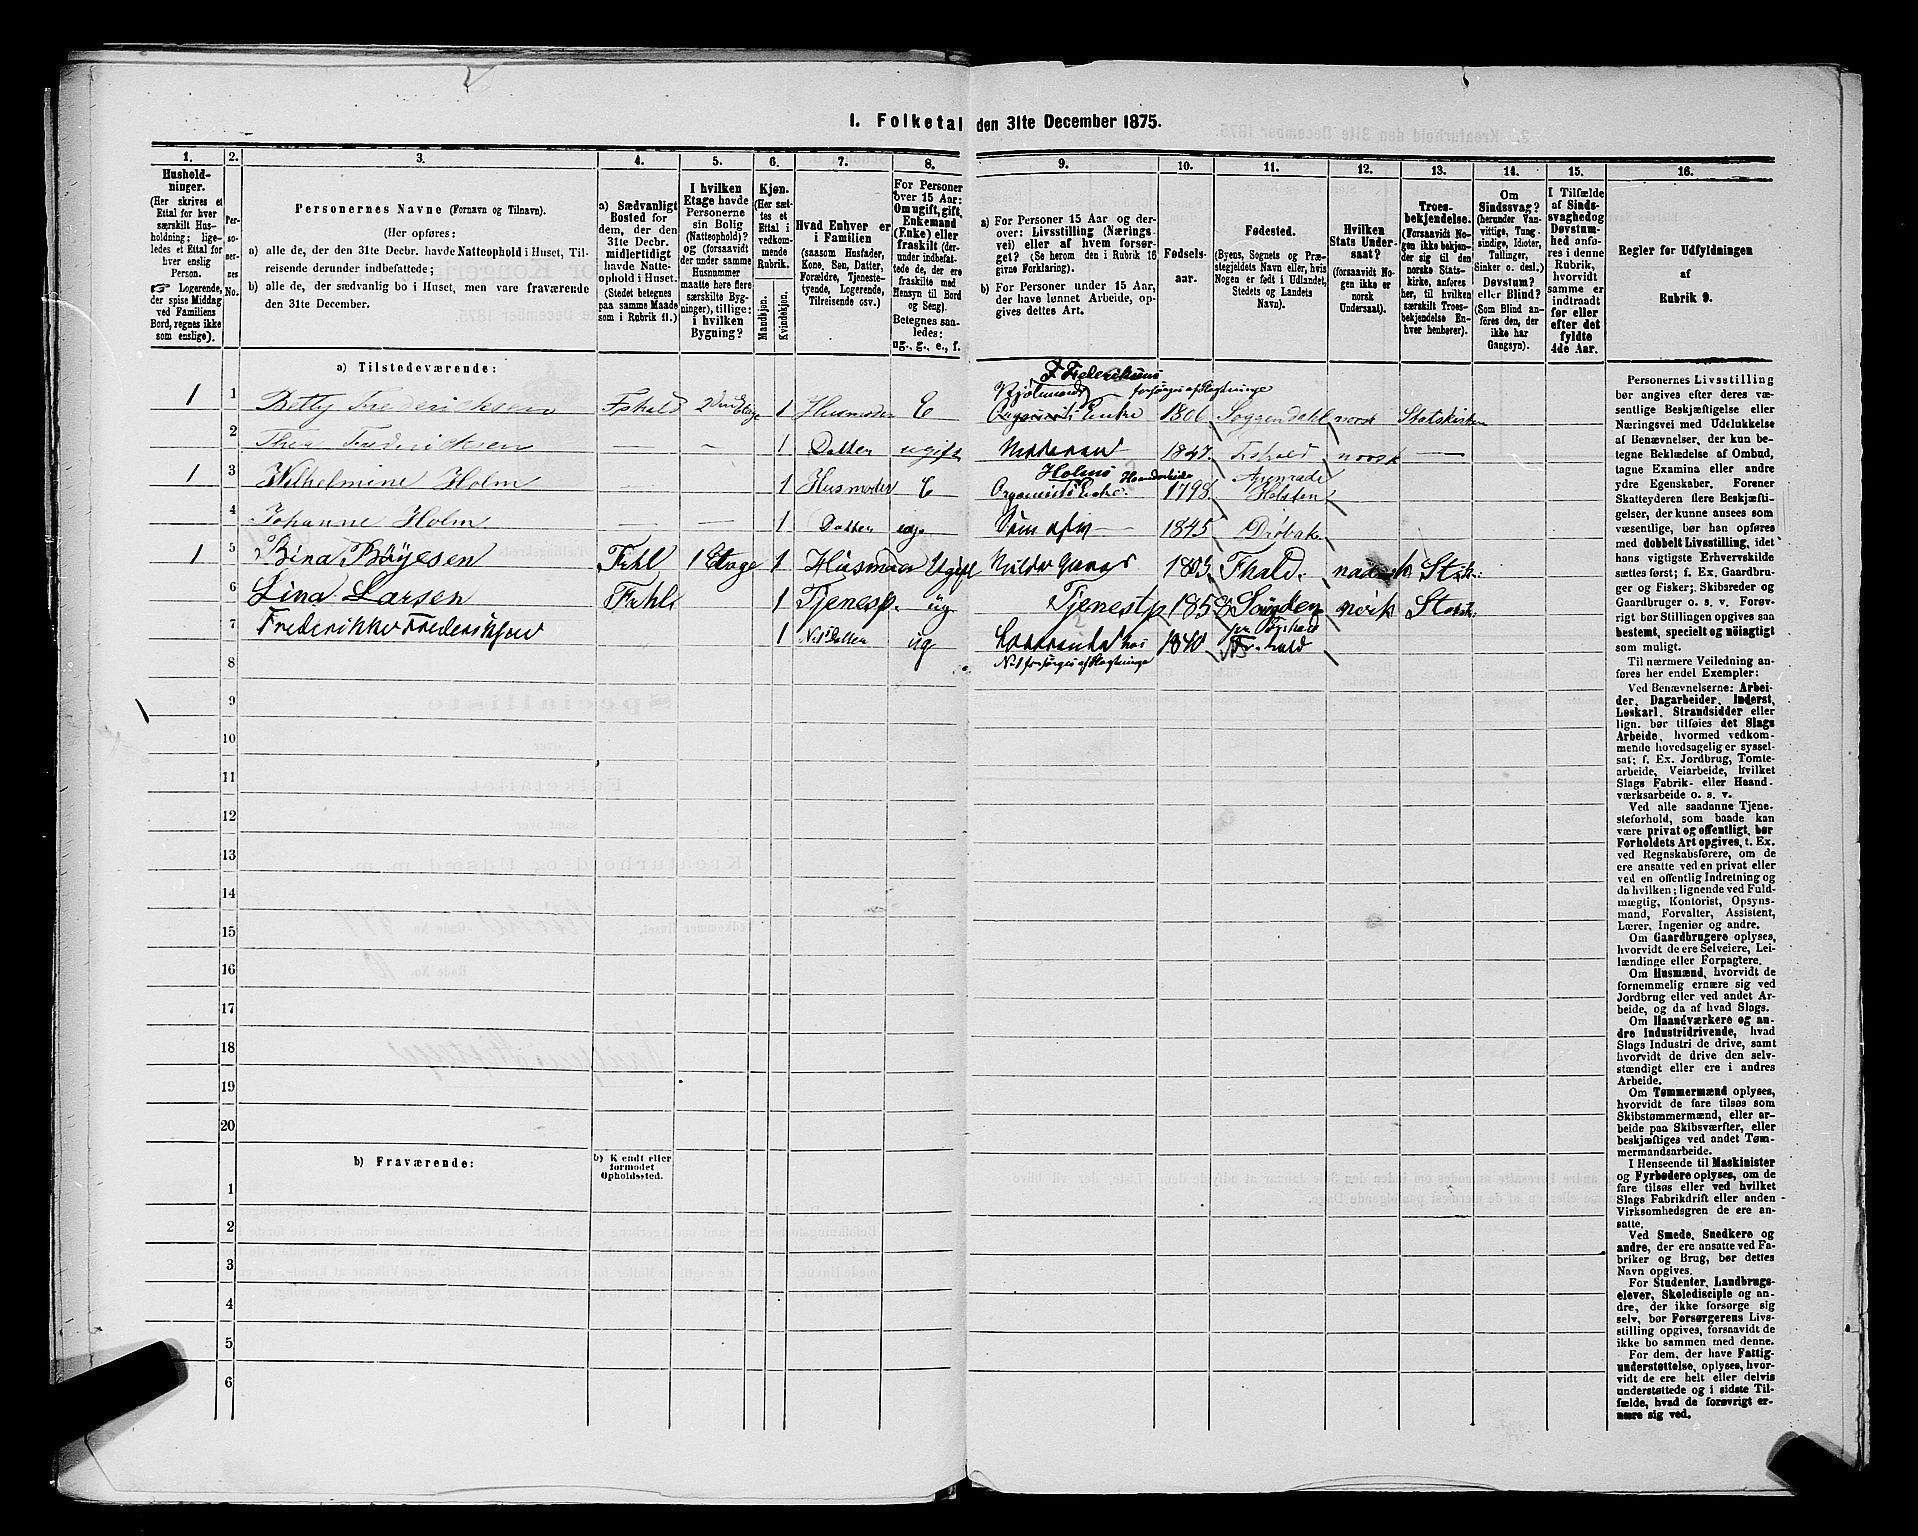 I. Folketal den 31te December 1875.
1. 2. 3. 4. 5. 6. 7. 8. 9. 10. 11. 12. 13. 14. 15. 16.
Husholdninger.
(Her skrives et
Ettal for hver
særskilt Husholdning; ligeledes et Ettal for
hver enslig
Person.
☞ Logerende,
der spise Middag
ved Familiens
Bord, regnes ikke
som enslige).
Personernes No.
Personernes Navne (Fornavn og Tilnavn).
(Her opføres:
a) alle de, der den 31te Decbr. havde Natteophold i Huset, Tilreisende derunder indbefattede;
b) alle de, der sædvanlig bo i Huset, men vare fraværende
den 31te December.
a) Sædvanligt
Bosted for
dem, der den
31te Decbr.
midlertidigt
havde Natteophold i Huset.
(Stedet betegnes
paa samme Maade
som i Rubrik 11.)
I hvilken
Etage havde
Personerne
sin Bolig
(Natteophold)?
og (forsaavidt
der under samme
Husnummer
maatte høre flere
særskilte Bygninger), tillige:
i hvilken
Bygning?
Kjøn.
(Her sættes et
Ettal i
vedkommende
Rubrik.
Mandkjøn.
Kvindekjøn.
Hvad Enhver er
i Familien
(saasom Husfader,
Kone, Søn, Datter,
Forældre, Tjenestetyende, Logerende,
Tilreisende osv.)
For Personer
over 15 Aar:
Om ugift, gift,
Enkemand
(Enke) eller
fraskilt (derunder indbefattede de, der ere
fraskilte med
Hensyn til Bord
og Seng).
Betegnes saaledes:
ug., g., e., f.
a) For Personer 15 Aar og derover: Livsstilling (Næringsvei) eller af hvem forsørget? (Se herom den i Rubrik 16
givne Forklaring).
b) For Personer under 15 Aar,
der have lønnet Arbeide, opgives dettes Art.
Fødselsaar.
Fødested.
(Byens, Sognets og Præstegjeldets Navn eller, hvis
Nogen er født i Udlandet,
Stedets og Landets
Navn).
Hvilken
Stats Undersaat?
(forsaavidt Nogen ikke er
norsk
Undersaat).
Troesbekjendelse.
(Forsaavidt Nogen ikke bekjender sig til den
norske Statskirke, anføres
her, til hvilken
særskilt Troesbekjendelse Enhver henhører).
Om
Sindssvag?
(herunder Vanvittige, Tungsindige, Idioter,
Tullinger,
Sinker o. desl.)
Døvstum?
eller Blind?
(Som Blind anføres den, der
ikke har
Gangsyn).
I Tilfælde
af Sindssvaghed og
Døvstumhed anføres i denne
Rubrik,
hvorvidt
samme er
indtraadt
før eller
efter det
fyldte
4de Aar.
Regler for Udfyldningen
af
Rubrik 9.
a) Tilstedeværende:
F Frederiksens
forsørges af Slægtninge
1 1 Betty Fredericksen Fshald 1 Husmoder E Enke 1806 Soggendahl norsk Statskirken
2 Thea Fredericksen — 1 Datter ugift 1847 Fshald norsk —
Holms Haandarbeide
1 3 Wilhelmine Holm — — 1 Husmoder E Organists Enke. 1798 Apenrade
Holsten
4 Johanne Holm — — 1 Datter ug Søm — 1845 Drøbak
1 5 Bina Bøyesen Frhl 1 Etage 1 Ugift 1805 Fhald. Stsk:
6 Lina Larsen Frhl 1 Tjenesp. ug Tjenestp 1858 norsk Stsk:
7 1 Datter ug 1840 Fr.hald
forsørges af Slægtninge
8
9
10
11
12
13
14
15
16
17
18
19
20
b) Fraværende:
b) Kjendt eller
formodet
Opholdssted.
1
2
3
4
5
6
Personernes Livsstilling
bør angives efter deres væsentlige Beskjæftigelse eller
Næringsvei med Udelukkelse
af Benævnelser, der kun betegne Beklædelse af Ombud,
tagne Examina eller andre
ydre Egenskaber. Forener
Skatteyderen flere Beskjæftigelser, der kunne ansees som
væsentlige, bør han opføres
med dobbelt Livsstilling, idet
hans vigtigste Erhvervskilde
sættes først; f. Ex. Gaardbruger og Fisker; Skibsreder og
Gaardbruger o. s. v. Forøvrigt bør Stillingen opgives saa
bestemt, specielt og nøiagtigt
som muligt.
Til nærmere Veiledning anføres her endel Exempler:
Ved Benævnelserne: Arbeider, Dagarbeider, Inderst,
Løskarl, Strandsidder eller
lign. bør tilføies det Slags
Arbeide, hvormed vedkommende hovedsagelig er sysselsat; f. Ex. Jordbrug, Tomtearbeide, Veiarbeide, hvilket
Slags Fabrik- eller Haandværksarbeide o. s. v.
Ved alle saadanne Tjenesteforhold, som baade kan
være privat og offentligt, bør
Forholdets Art opgives, t. Ex.
ved Regnskabsførere, om de
ere ansatte ved en privat eller
ved en offentlig Indretning og
da hvilken; lignende ved Fuldmægtig, Kontorist, Opsynsmand, Forvalter, Assistent,
Lærer, Ingeniør og andre.
Om Gaardbrugere oplyses,
hvorvidt de ere Selveiere, Leilændinge eller Forpagtere.
Om Husmænd, hvorvidt de
fornemmelig ernære sig ved
Jordbrug eller ved andet Arbeide, og da af hvad Slags.
Om Haandværkere og andre Industridrivende, hvad
Slags Industri de drive, samt
hvorvidt de drive den selvstændigt eller ere i andres
Arbeide.
Om Tømmermænd oplyses,
hvorvidt de fare tilsøs som
Skibstømmermænd, eller arbeide paa Skibsværfter, eller
beskjæftiges ved andet Tømmermandsarbeide.
I Henseende til Maskinister
og Fyrbødere oplyses, om de
fare tilsøs eller ved hvilket
Slags Fabrikdrift eller anden
Virksomhedsgren de ere ansatte.
Ved Smede, Snedkere og
andre, der ere ansatte ved Fabriker og Brug, bør dettes
Navn opgives.
For Studenter, Landbrugselever, Skoledisciple og andre, der ikke forsørge sig
selv, bør Forsørgerens Livsstilling opgives, forsaavidt de
ikke bo sammen med denne.
For dem, der have Fattigunderstøttelse, oplyses, hvorvidt de ere helt eller delvis
understøttede og i sidste Tilfælde, hvad de forøvrigt ernære sig ved.